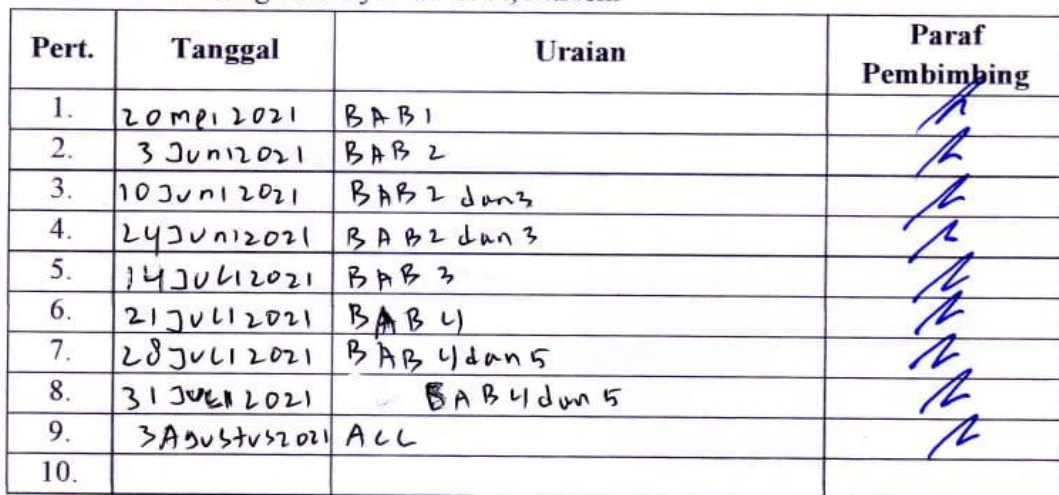 Pert. Tanggal Uraian Paraf Pembimbing
1. 20 mei 2021 BAB 1
2. 3 Juni 2021 BAB 2
3. 10 Juni 2021 BAB 2 dan 3
4. 24 Juni 2021 BAB 2 dan 3
5. 14 JULI 2021 BAB 3
6. 21 JULI 2021 BAB 4
7. 28 JULI 2021 BAB 4 dan 5
8. 31 JULI 2021 BAB 4 dan 5
9. 3 Agustus 2021 ACC
10.